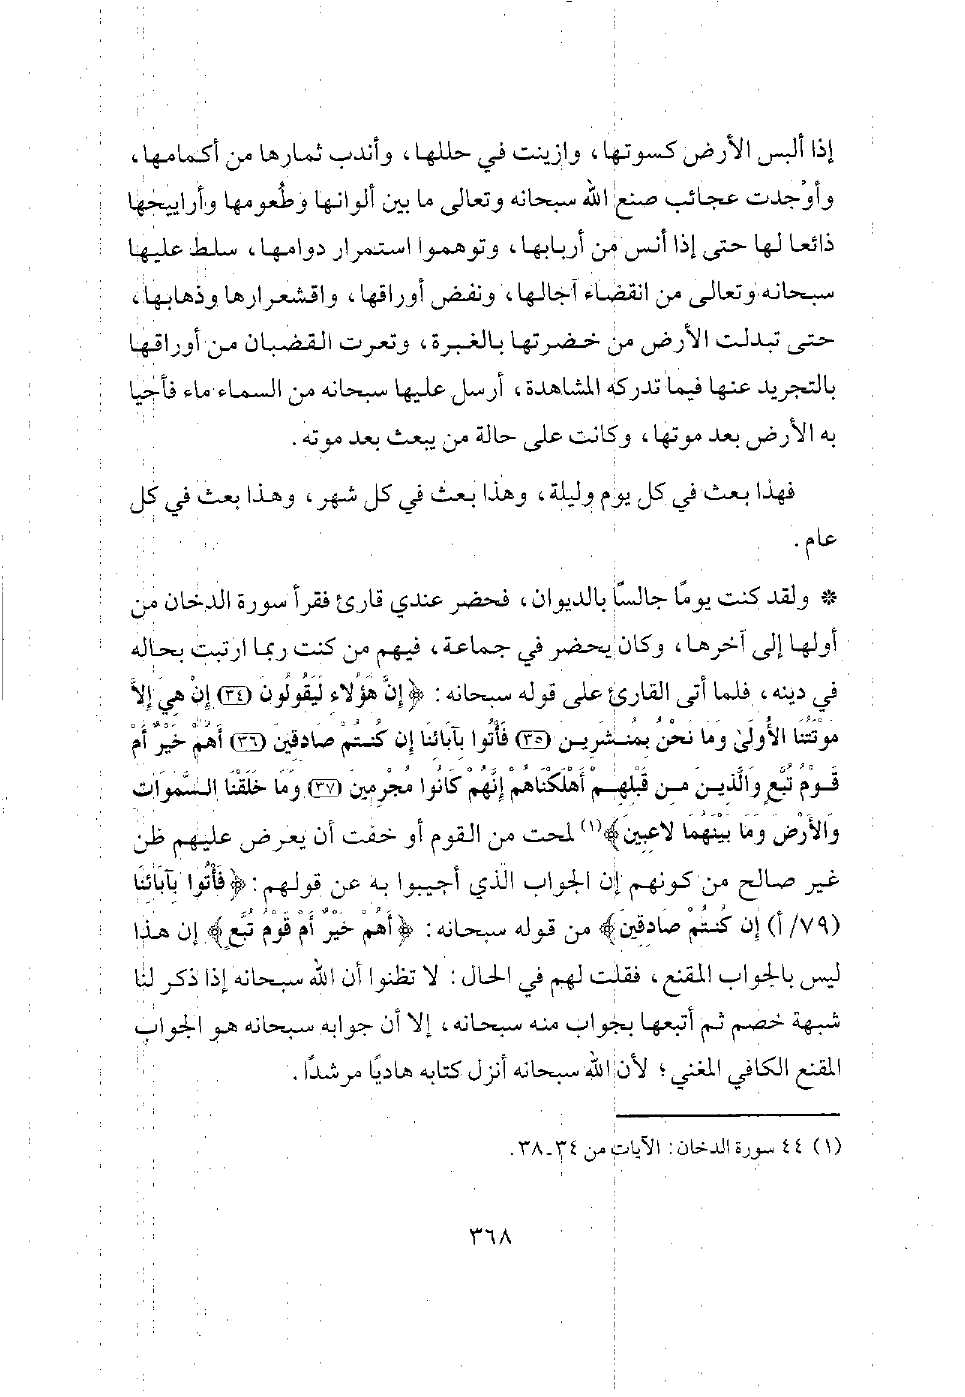 إذا ألبس الأرض كسوتها، وازينت في حللها، وأندب ثمارها من أكمامها،
وأوْجدت عجائب صنع الله سبحانه وتعالى ما بين ألوانها وطُعومها وأراييحها
ذائعا لها حتى إذا أنس من أربابها، وتوهموا استمرار دوامها، سلط عليها
سبحانه وتعالى من انقضاء آجالها، ونفض أوراقها، واقشعرارها وذهابها،
حتى تبدلت الأرض من خضرتها بالغبرة، وتعرت القضبان من أوراقها
بالتجريد عنها فيما تدركه المشاهدة، أرسل عليها سبحانه من السماء ماء فأحيا
به الأرض بعد موتها، وكانت على حالة من يبعث بعد موته.
فهذا بعث في كل يوم وليلة، وهذا بعث في كل شهر، وهذا بعث في كل
عام.
* ولقد كنت يومًا جالسًا بالديوان، فحضر عندي قارئ فقرأ سورة الدخان من
أولها إلى آخرها، وكان يحضر في جماعة، فيهم من كنت ربما ارتبت بحاله
في دينه، فلما أتى القارئ على قوله سبحانه: ﴿إِنَّ هَؤُلاءِ لَيَقُولُونَ (٣٤) إِنْ هِيَ إِلاَّ
مَوْتَتُنَا الأُولَىٰ وَمَا نَحْنُ بِمُنشَرِينَ (٣٥) فَأْتُوا بِآبَائِنَا إِن كُنتُمْ صَادِقِينَ (٣٦) أَهُمْ خَيْرٌ أَمْ
قَوْمُ تُبَّعٍ وَالَّذِينَ مِن قَبْلِهِمْ أَهْلَكْنَاهُمْ إِنَّهُمْ كَانُوا مُجْرِمِينَ (٣٧) وَمَا خَلَقْنَا السَّمَوَاتِ
وَالأَرْضَ وَمَا بَيْنَهُمَا لاعِبِينَ﴾(١) لمحت من القوم أو خفت أن يعرض عليهم ظن
غير صالح من كونهم إن الجواب الذي أجيبوا به عن قولهم: ﴿فَأْتُوا بِآبَائِنَا
(٧٩/أ) إِن كُنتُمْ صَادِقِينَ﴾ من قوله سبحانه: ﴿أَهُمْ خَيْرٌ أَمْ قَوْمُ تُبَّعٍ﴾ إن هذا
ليس بالجواب المقنع، فقلت لهم في الحال: لا تظنوا أن الله سبحانه إذا ذكر لنا
شبهة خصم ثم أتبعها بجواب منه سبحانه، إلا أن جوابه سبحانه هو الجواب
المقنع الكافي المغني؛ لأن الله سبحانه أنزل كتابه هاديًا مرشدًا.
(١) ٤٤ سورة الدخان: الآيات من ٣٤-٣٨.
٣٦٨